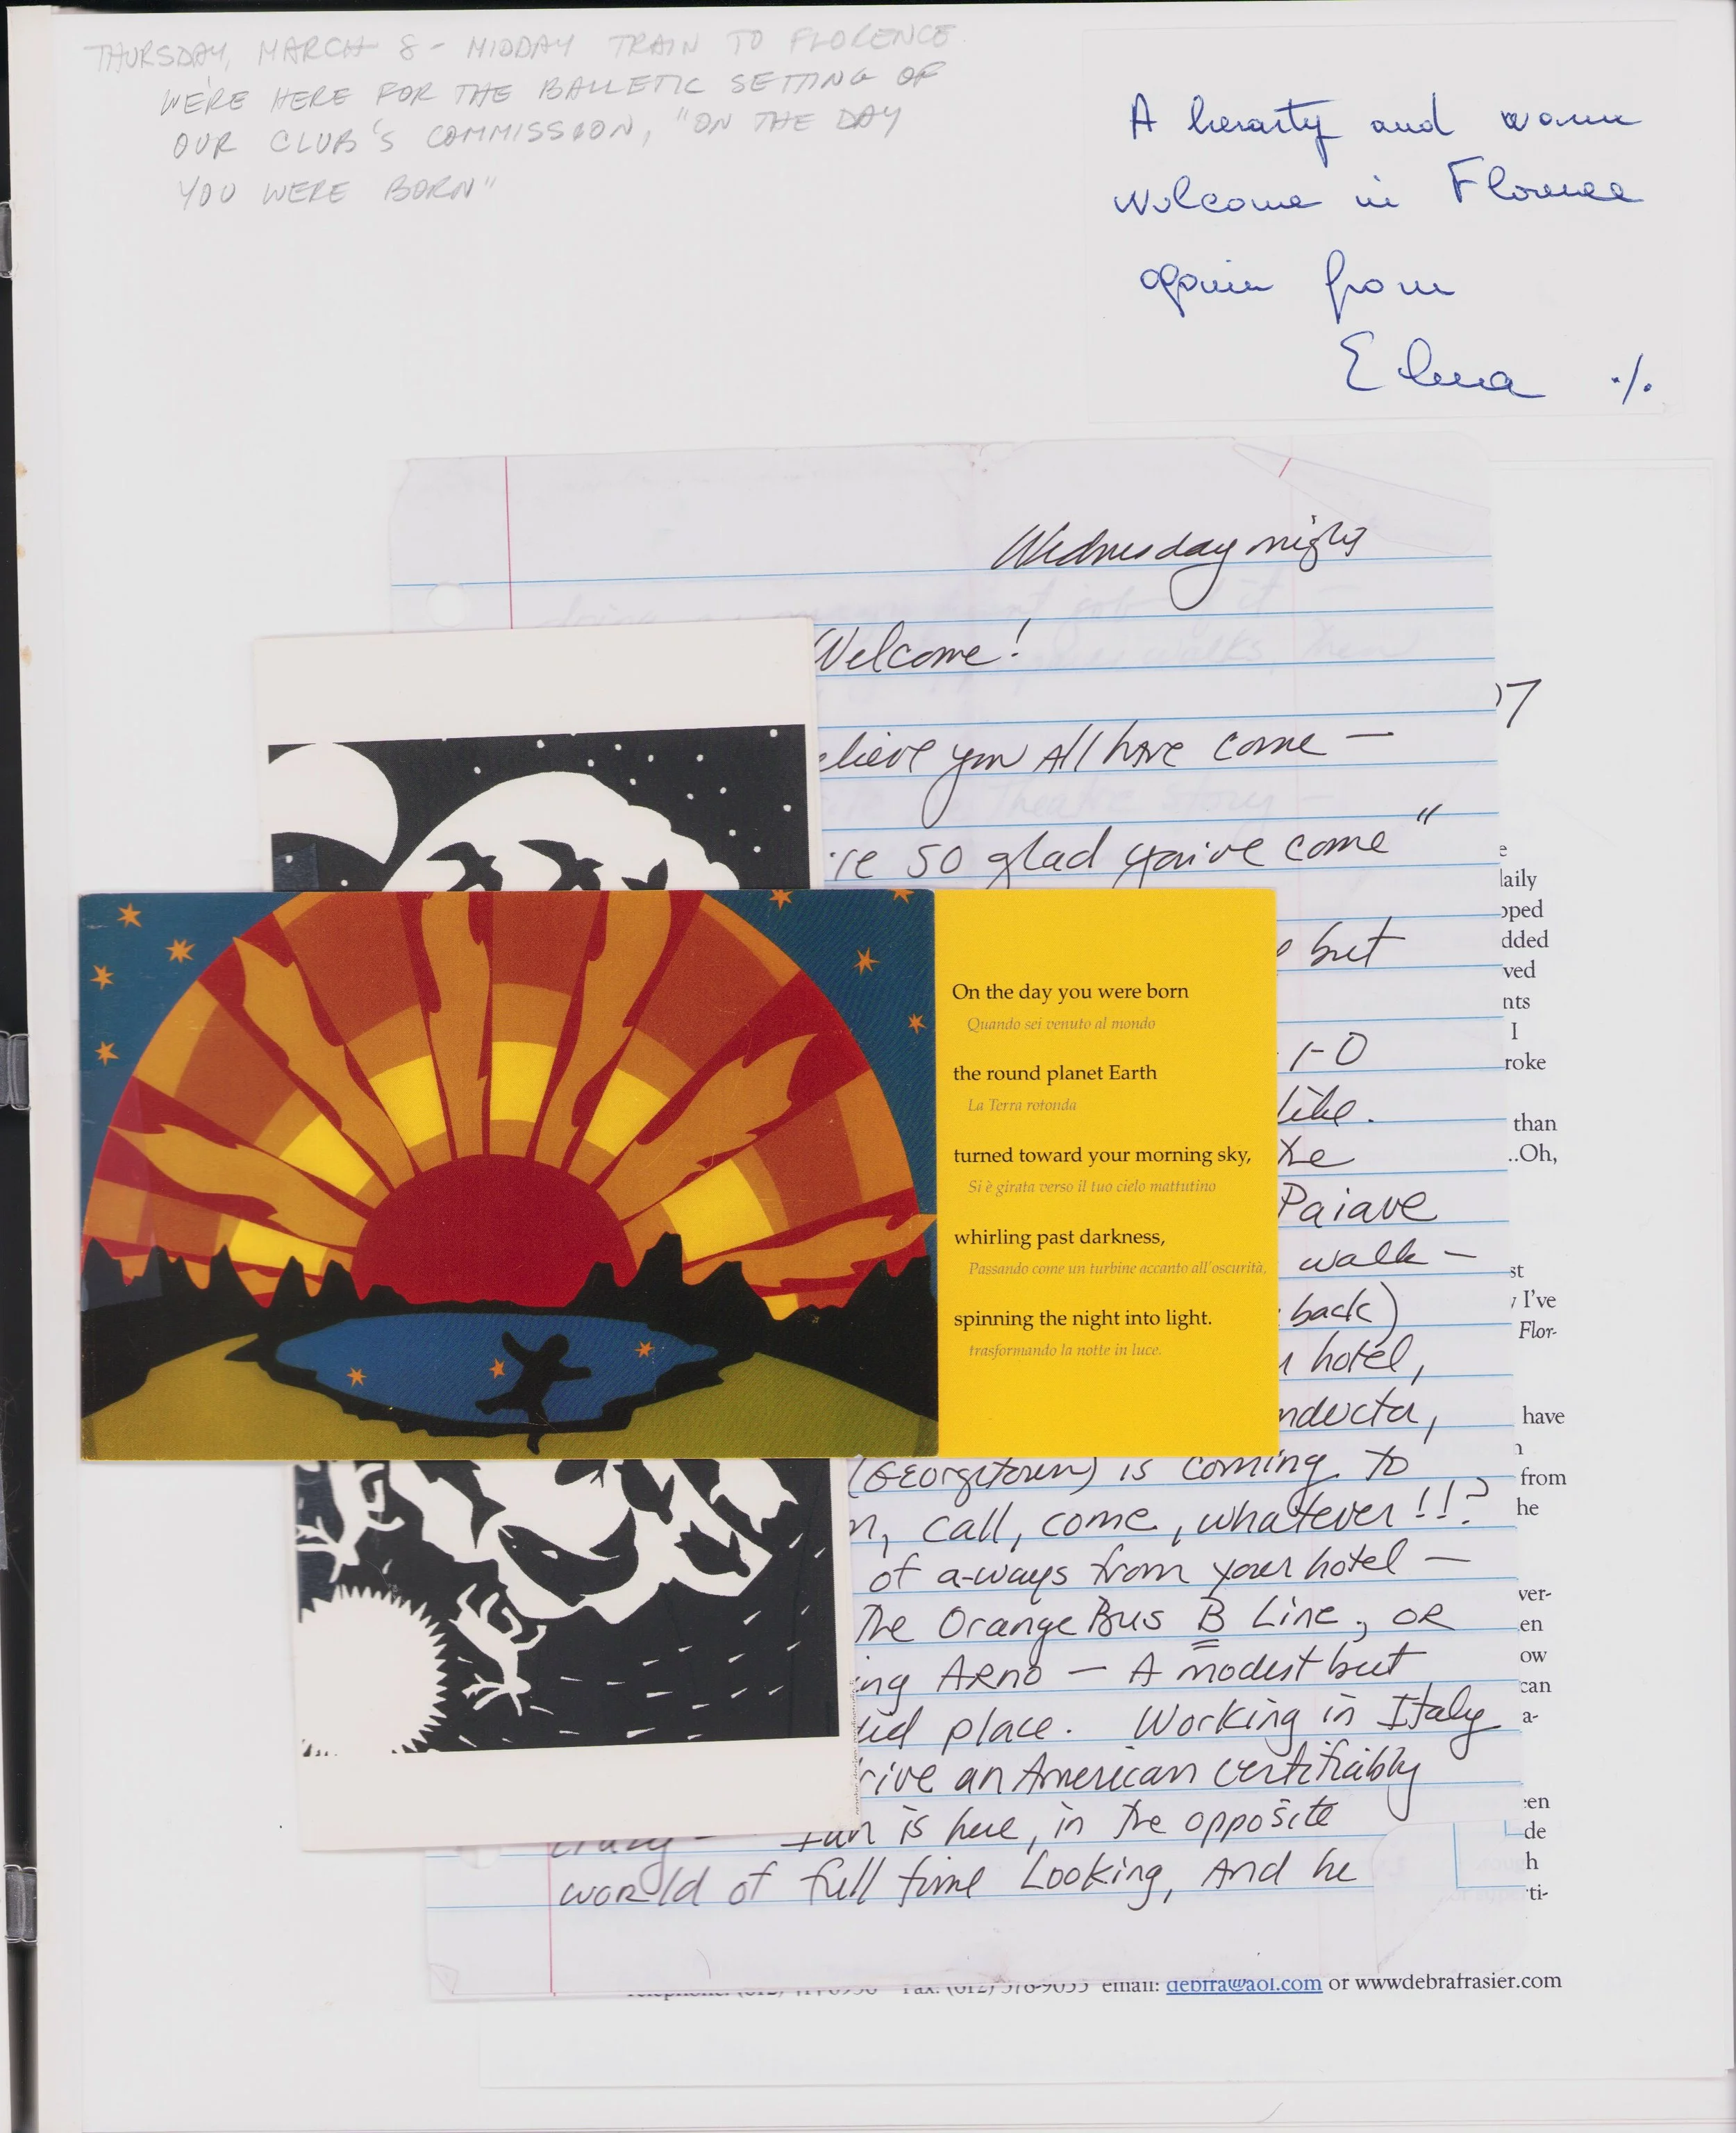 THURSDAY, MARCH 8 - MIDDAY TRAIN TO FLORENCE.
WE'RE HERE FOR THE BALLETIC SETTING OF
OUR CLUB'S COMMISSION, "ON THE DAY
YOU WERE BORN"
A hearty and warm
welcome in Florence
again from
Elena ./.
Wednesday night
Welcome!
elieve you All have come —
're so glad you've come"
but
1-0
like.
the
Paiave
walk —
back)
hotel,
nducta,
(Georgetown) is coming to
n, call, come, whatever!!?
of a-ways from your hotel —
The Orange Bus B Line, OR
ing ARNO — A modest but
place. Working in Italy
rive an American certifiably
crazy — Ian is here, in the opposite
world of full time Looking, And he
On the day you were born
Quando sei venuto al mondo
the round planet Earth
La Terra rotonda
turned toward your morning sky,
Si è girata verso il tuo cielo mattutino
whirling past darkness,
Passando come un turbine accanto all'oscurità,
spinning the night into light.
trasformando la notte in luce.
)7
e
laily
pped
dded
ved
nts
I
roke
than
..Oh,
st
I've
Flor-
have
n
from
he
ver-
en
ow
can
a-
en
de
h
ti-
email: debfra@aol.com or wwwdebrafrasier.com